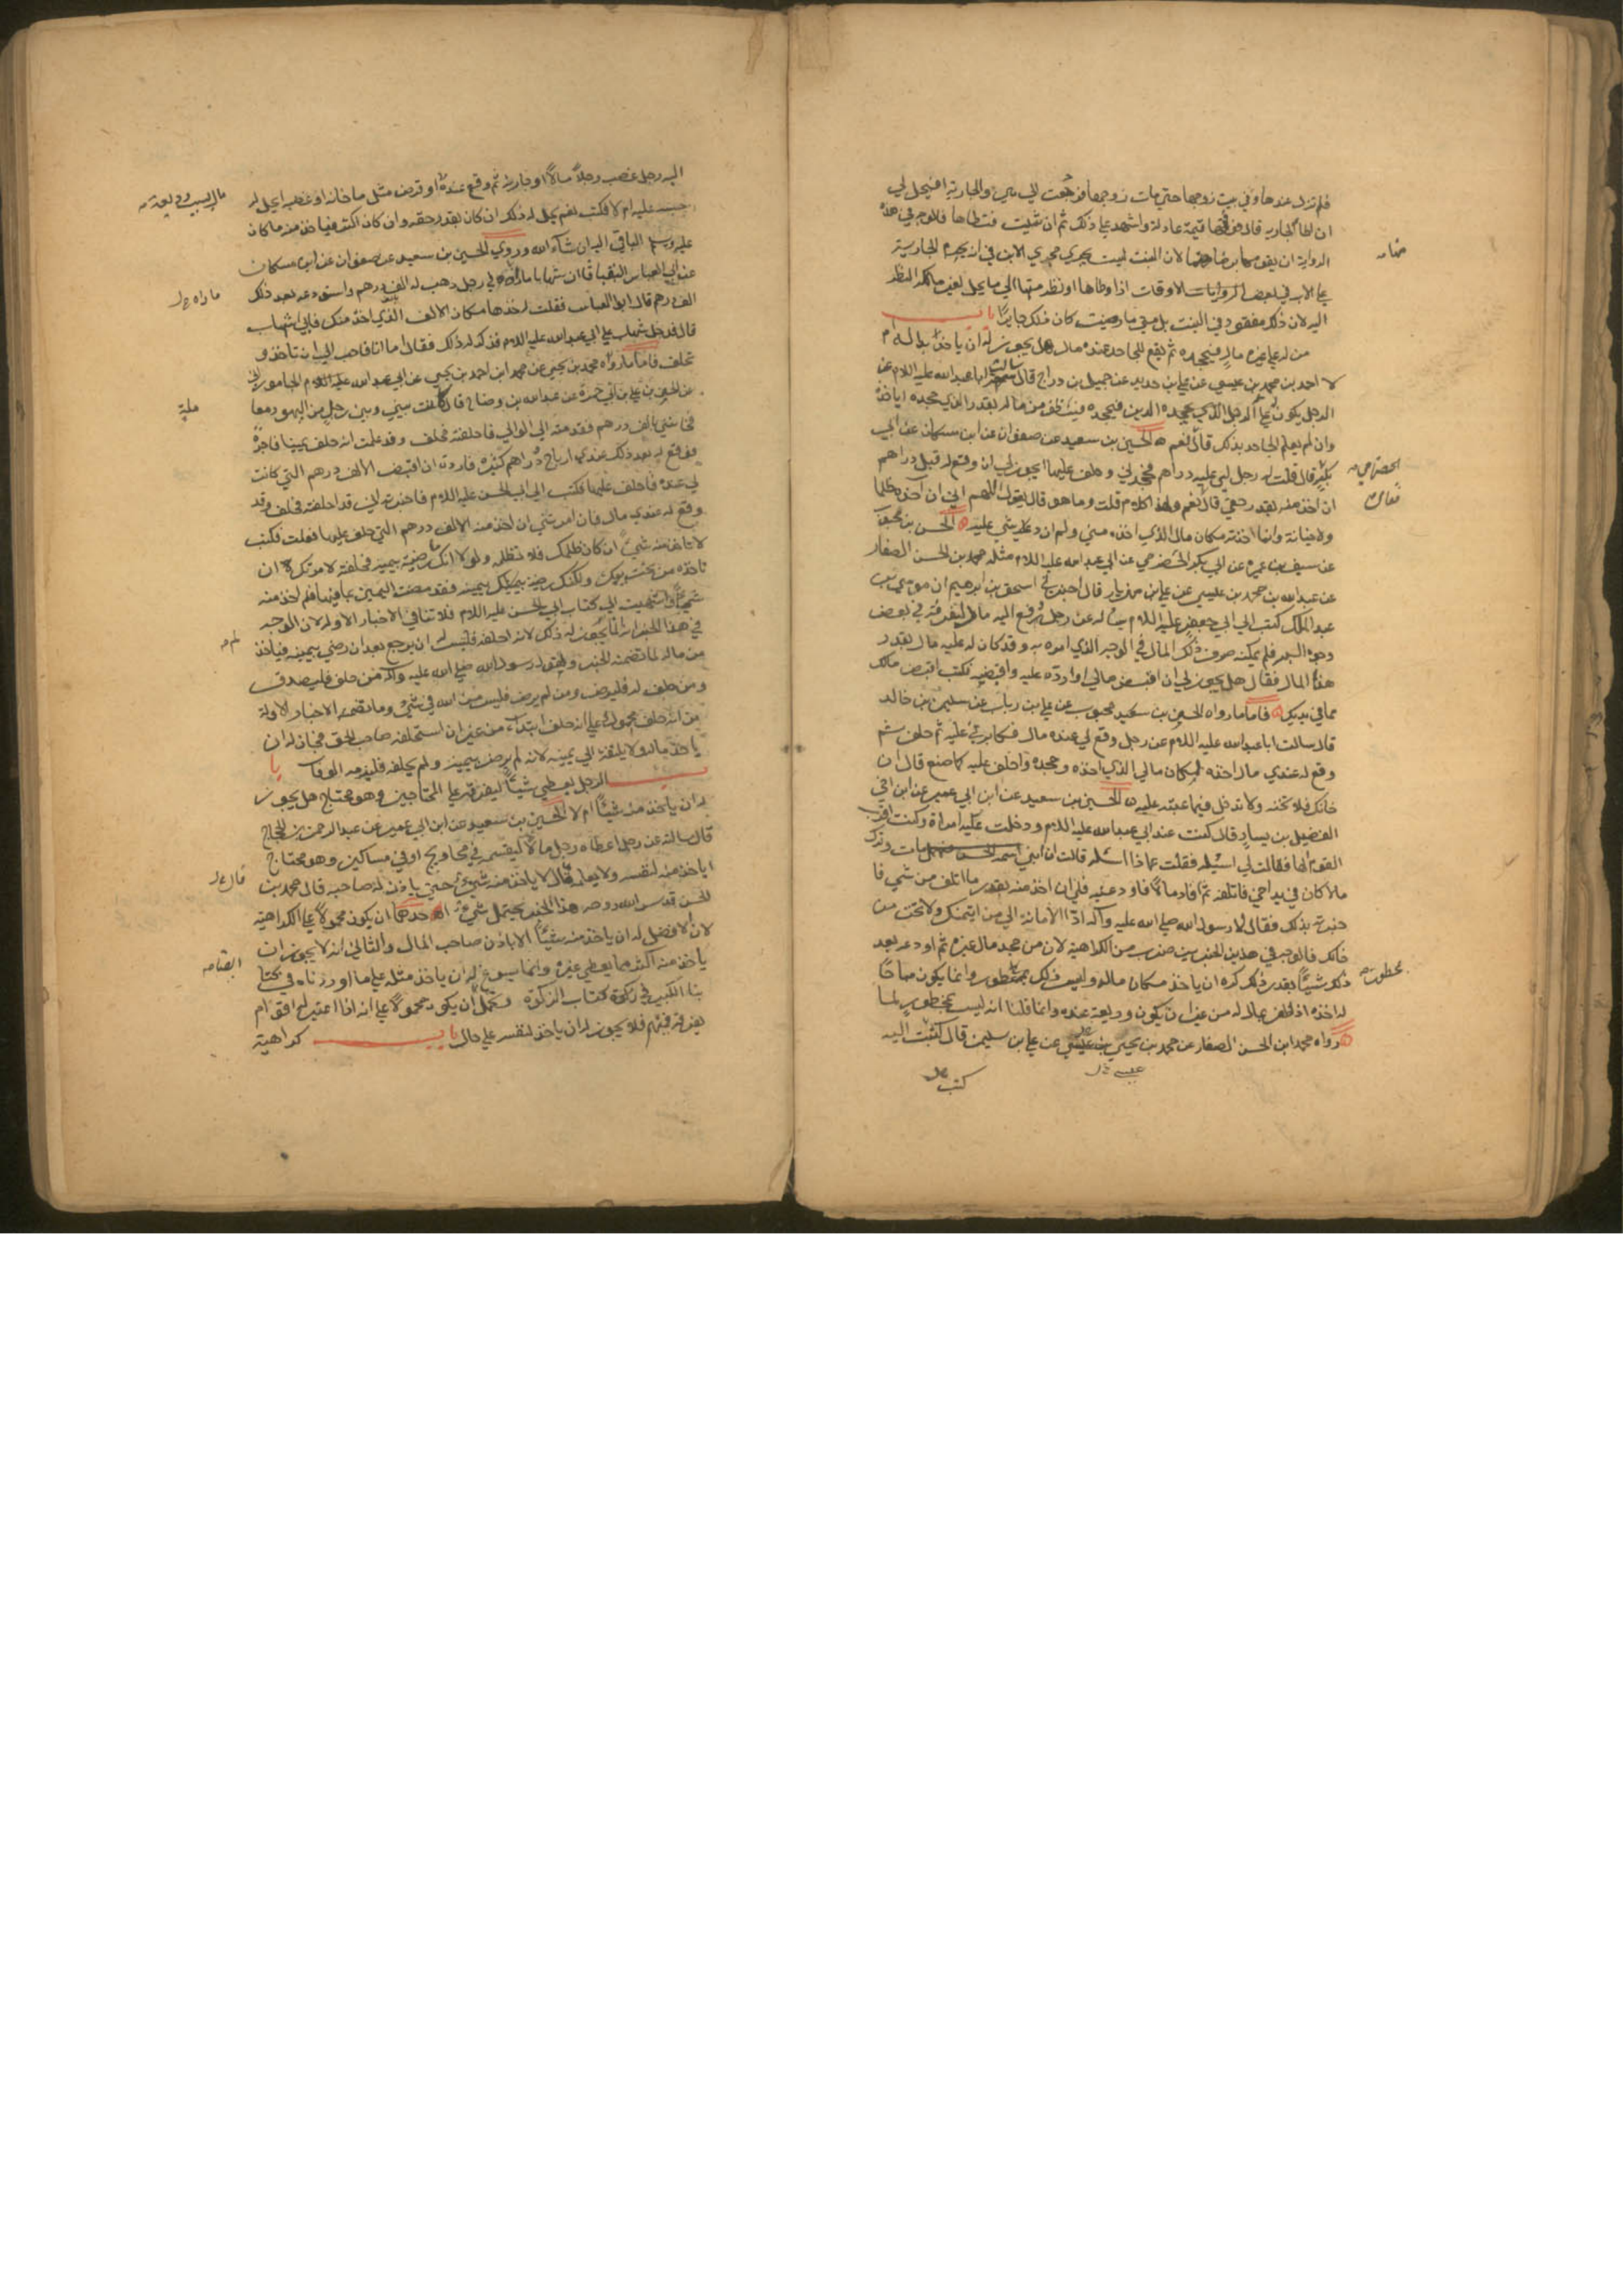 فلم تزل عندها وفي بيت زوجها حتى مات زوجها فرجعت الي هي والجارية افيحل لي
ان اطا الجارية قال قومها قيمة عادلة واشهد على ذلك ثم ان شئت فتطاها فالوجه في هذه
الرواية ان يقومها برضاها لان البنت ليست يجري مجري الابن في انه يحرم الجارية
على الاب في بعض الروايات الاوقات اذا وطاها او نظر منها الي ما يحل لغير مالكها النظر
اليه لان ذلك مفقود في البنت بل متى ما رضيت كان ذلك جايزا باب
من له على غيره مال فيجحده ثم يقع للجاحد عنده مال هل يجوز له ان ياخذ بداله ام
لا احمد بن محمد بن عيسي عن علي بن حديد عن جميل بن دراج قال سالت ابا عبد الله عليه السلام عن
الرجل يكون له على الرجل الدين فيجحده فيظفر من ماله بقدر الذي جحده اياخذه
وان لم يعلم الجاحد بذلك قال نعم الحسين بن سعيد عن صفوان عن ابن مسكان عن ابي
بكر قال قلت له رجل لي عليه دراهم فجحدني وحلف عليها ايجوز لي ان وقع له قبلي دراهم
ان اخذ منه بقدر حقي قال نعم ولهذا كلام قلت وما هو قال يقول اللهم اني لن آخذه ظلما
ولا خيانة وانما اخذته مكان مالي الذي اخذه مني ولم ازدد شيئا عليه الحسن بن محبوب
عن سيف بن عميرة عن ابي بكر الحضرمي عن ابي عبد الله عليه السلام مثله محمد بن الحسن الصفار
عن عبد الله بن محمد بن عيسي عن علي بن مهزيار قال اخبرني اسحق بن ابرهيم ان موسي بن
عبد الملك كتب الي ابي جعفر عليه السلام يساله عن رجل دفع اليه مالا ليفرقه في بعض
وجوه البر فلم يمكنه صرف ذلك المال في الوجه الذي امره به وقد كان له عليه مال بقدر
هذا المال فقال هل يجوز لي ان اقبض مالي او ارده عليه واقتضيه فكتب اقبض مالك
مما في يديك فاما ما رواه الحسين بن سعيد عن ابن محبوب عن علي بن رياب عن سليمن بن خالد
قال سالت ابا عبد الله عليه السلام عن رجل وقع لي عنده مال فكابرني عليه ثم حلف ثم
وقع له عندي مال اخذه لمكان مالي الذي اخذه وجحده واحلف عليه كما صنع قال ان
خانك فلا تخنه ولا تدخل فيما عبته عليه الحسين بن سعيد عن ابن ابي عمير عن ابن اخي
الفضيل بن يسار قال كنت عند ابي عبد الله عليه السلام ودخلت عليه امراة وكنت اقرب
القوم اليها فقالت لي اسئله فقلت عما ذا اسئله قالت ان ابني مات وترك
مالا كان في يد اخي فاتلفه ثم افاد مالا فاودعنيه فلي ان اخذ منه بقدر ما اتلف من شي فا
خبرته بذلك فقال لا رسول الله صلى الله عليه وآله ادّ الامانة الي من ايتمنك ولا تخن من
خانك فالوجه في هذين الخبرين ضرب من الكراهية لان من جحد مال غيره ثم اودعه بعد
ذلك شيئا بقدر ذلك كره ان ياخذ مكان ماله وليس ذلك بمحظور وانما يكون مباحا
له اخذه اذا ظفر بمال له من غير ان يكون وديعة عنده وانما قلنا انه ليس بمحظور لما
رواه محمد ابن الحسن الصفار عن محمد بن يحيي بن عيسي عن علي بن سليمن قال كتبت اليه
عيسى
كتب
الحضرمي
محظور
اليه رجل غصب رجلا مالا او جارية ثم وقع عنده او قرض مثل ما خانه او غصبه ايحل له
حبسه عليه ام لا فكتب نعم يحل له ذلك ان كان بقدر حقه وان كان اكثر فياخذ منه ما كان
عليه ويسلم الباقي اليه ان شاء الله وروي الحسين بن سعيد عن صفوان عن ابن مسكان
عن ابي العباس البقباق ان شهابا ماراه في رجل ذهب له الف درهم واستودعه بعد ذلك
الف درهم قال ابو العباس فقلت له خذها مكان الالف الذي اخذ منك فابي شهاب
قال فدخل شهاب على ابي عبد الله عليه السلام فذكر له ذلك فقال اما انا فاحب الي ان تاخذ و
تحلف فاما ما رواه محمد بن يحيي عن محمد ابن احمد بن يحيي عن ابي عبد الله الجاموراني
عن الحسن بن علي بن ابي حمزة عن عبد الله بن وضاح قال كانت بيني وبين رجل من اليهود معاملة
فخانني بالف درهم فقدمته الي الوالي فاحلفته فحلف وقد علمت انه حلف يمينا فاجرة
فوقع له بعد ذلك عندي ارباح ودراهم كثيرة فاردت ان اقبض الالف درهم التي كانت
لي عنده فاحلف عليها فكتبت الي ابي الحسن عليه السلام فاخبرته اني قد احلفته فحلف وقد
وقع له عندي مال فان امرتني ان اخذ منه الالف درهم التي حلف عليها فعلت فكتب
لا تاخذ منه شيئا ان كان ظلمك فلا تظلمه ولولا انك رضيت بيمينه فحلفته لامرتك ان
تاخذه من تحت يديك ولكنك رضيت بيمينه فقد مضت اليمين بما فيها فلم اخذ منه
شيئا وانتهيت الي كتاب ابي الحسن عليه السلام فلا تنافي الاخبار الاوله لان الوجه
في هذا الخبر انه انما لم يجوز له ذلك لانه احلفه فليس له ان يرجع بعد ان رضي بيمينه فياخذ
من ماله لما تضمنه الخبر ولقول رسول الله صلى الله عليه وآله من حلف فليصدق
ومن حلف له فليرض ومن لم يرض فليس من الله في شيء وما تضمنه الاخبار الاولة
من انه حلف محمولة على انه حلف ابتداء من غير ان استحلفه صاحب الحق فجاز له ان
ياخذ ماله ولا يلتفت الي يمينه لانه لم يرض بيمينه ولم يحلفه فليزمه الوفا با
ب الرجل يعطي شيئا ليفرقه على المحتاجين وهو محتاج هل يجوز
له ان ياخذ منه شيئا ام لا الحسين بن سعيد عن ابن ابي عمير عن عبد الرحمن بن الحجاج
قال سالته عن رجل اعطاه رجل مالا ليقسمه في محاويج او في مساكين وهو محتاج
اياخذ منه لنفسه ولا يعلمه قال لا ياخذ منه شيئ حتى ياذن له صاحبه قال محمد بن
الحسن قدس الله روحه هذا الخبر يحتمل شيء احدهما ان يكون محمولا على الكراهية
لان الافضل له ان ياخذ منه شيئا الا باذن صاحب المال والثاني انه لا يجوز ان
ياخذ منه اكثر مما يعطي غيره وانما يسوغ له ان ياخذ مثله على ما اوردناه في كتا
بنا الكبير في زكوة كتاب الزكوة ويحتمل ان يكون محمولا على انه اذا اعتين له اقوام
يفرقه فيهم فلا يجوز له ان ياخذ لنفسه على حال باب كراهية